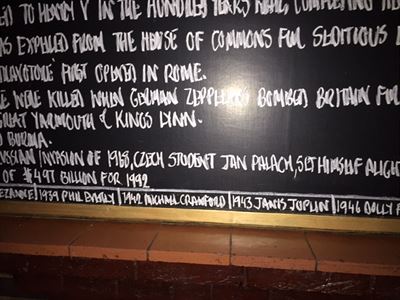 TO HENRY V IN THE HUNDRED YEARS WAR, COMPLETING
EXPELLED FROM THE HOUSE OF COMMONS FOR SEDITIOUS
FIRST OPENED IN ROME.
WERE KILLED WHEN GERMAN ZEPPELINS BOMBED BRITAIN FOR
GREAT YARMOUTH & KINGS LYNN.
BURMA.
INVASION OF 1968, CZECH STUDENT JAN PALACH, SET HIMSELF ALIGHT
OF $497 BILLION FOR 1992
1939 PHIL EVERLY | 1942 MICHAEL CRAWFORD | 1943 JANIS JOPLIN | 1946 DOLLY